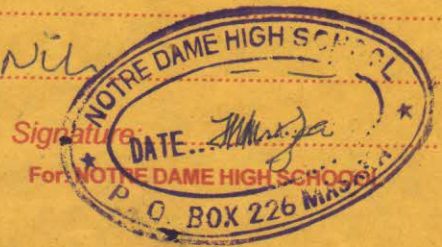 Nil
NOTRE DAME HIGH SCHOOL
Signature:
DATE...
For: NOTRE DAME HIGH SCHOOL
P. O. BOX 226